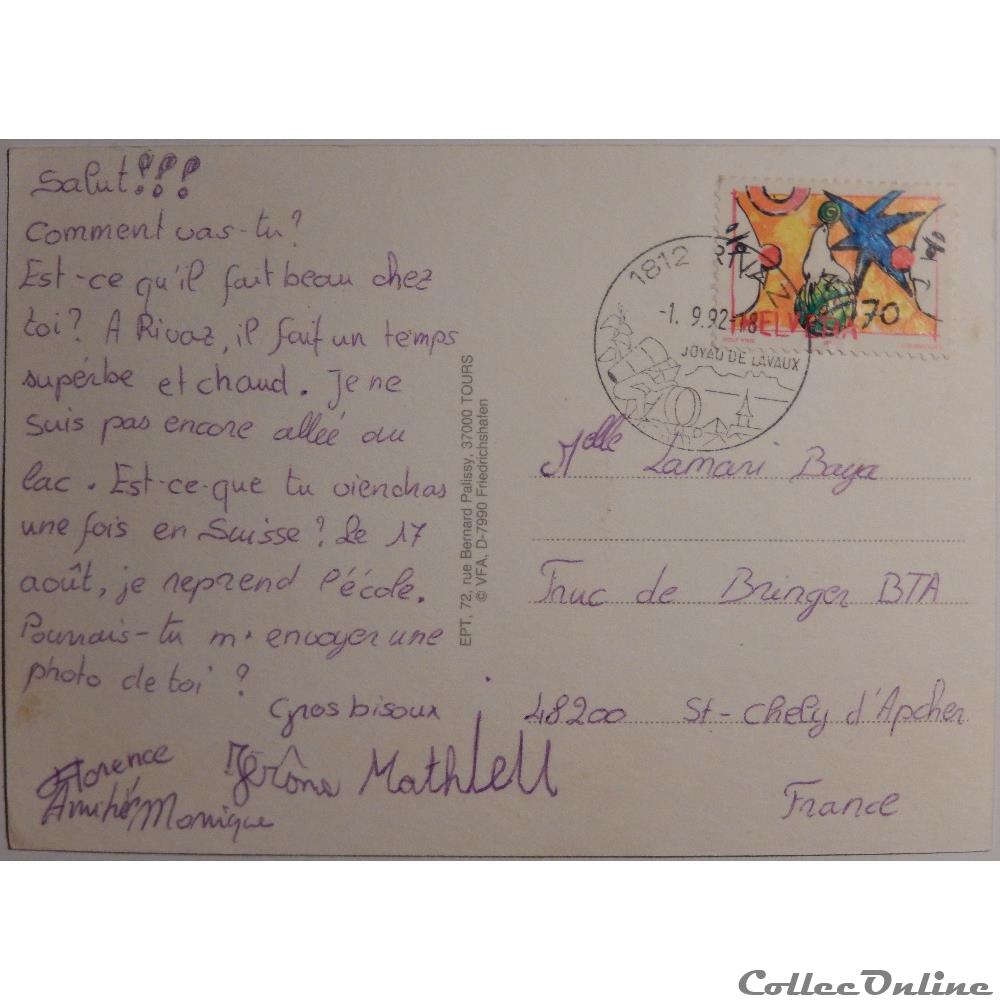 Salut!!!
Comment vas-tu?
Est-ce qu'il fait beau chez
toi? A Rivaz, il fait un temps
supérbe et chaud. Je ne
suis pas encore allée au
lac. Est-ce-que tu viendras
une fois en Suisse? Le 17
août, je reprend l'école.
Pourrais-tu m'envoyer une
photo de toi?
Gros bisoux
Florence
Jérôme Mathieu
Amitiés Monique
EPT, 72, rue Bernard Palissy, 37000 TOURS
© VFA, D-7990 Friedrichshafen
1812 RIVAZ
-1. 9.92-18
JOYAU DE LAVAUX
HELVETIA 70
Melle Lamari Baya
Truc de Bringer BTA
48200 St-Chely d'Apcher
France
CollecOnline